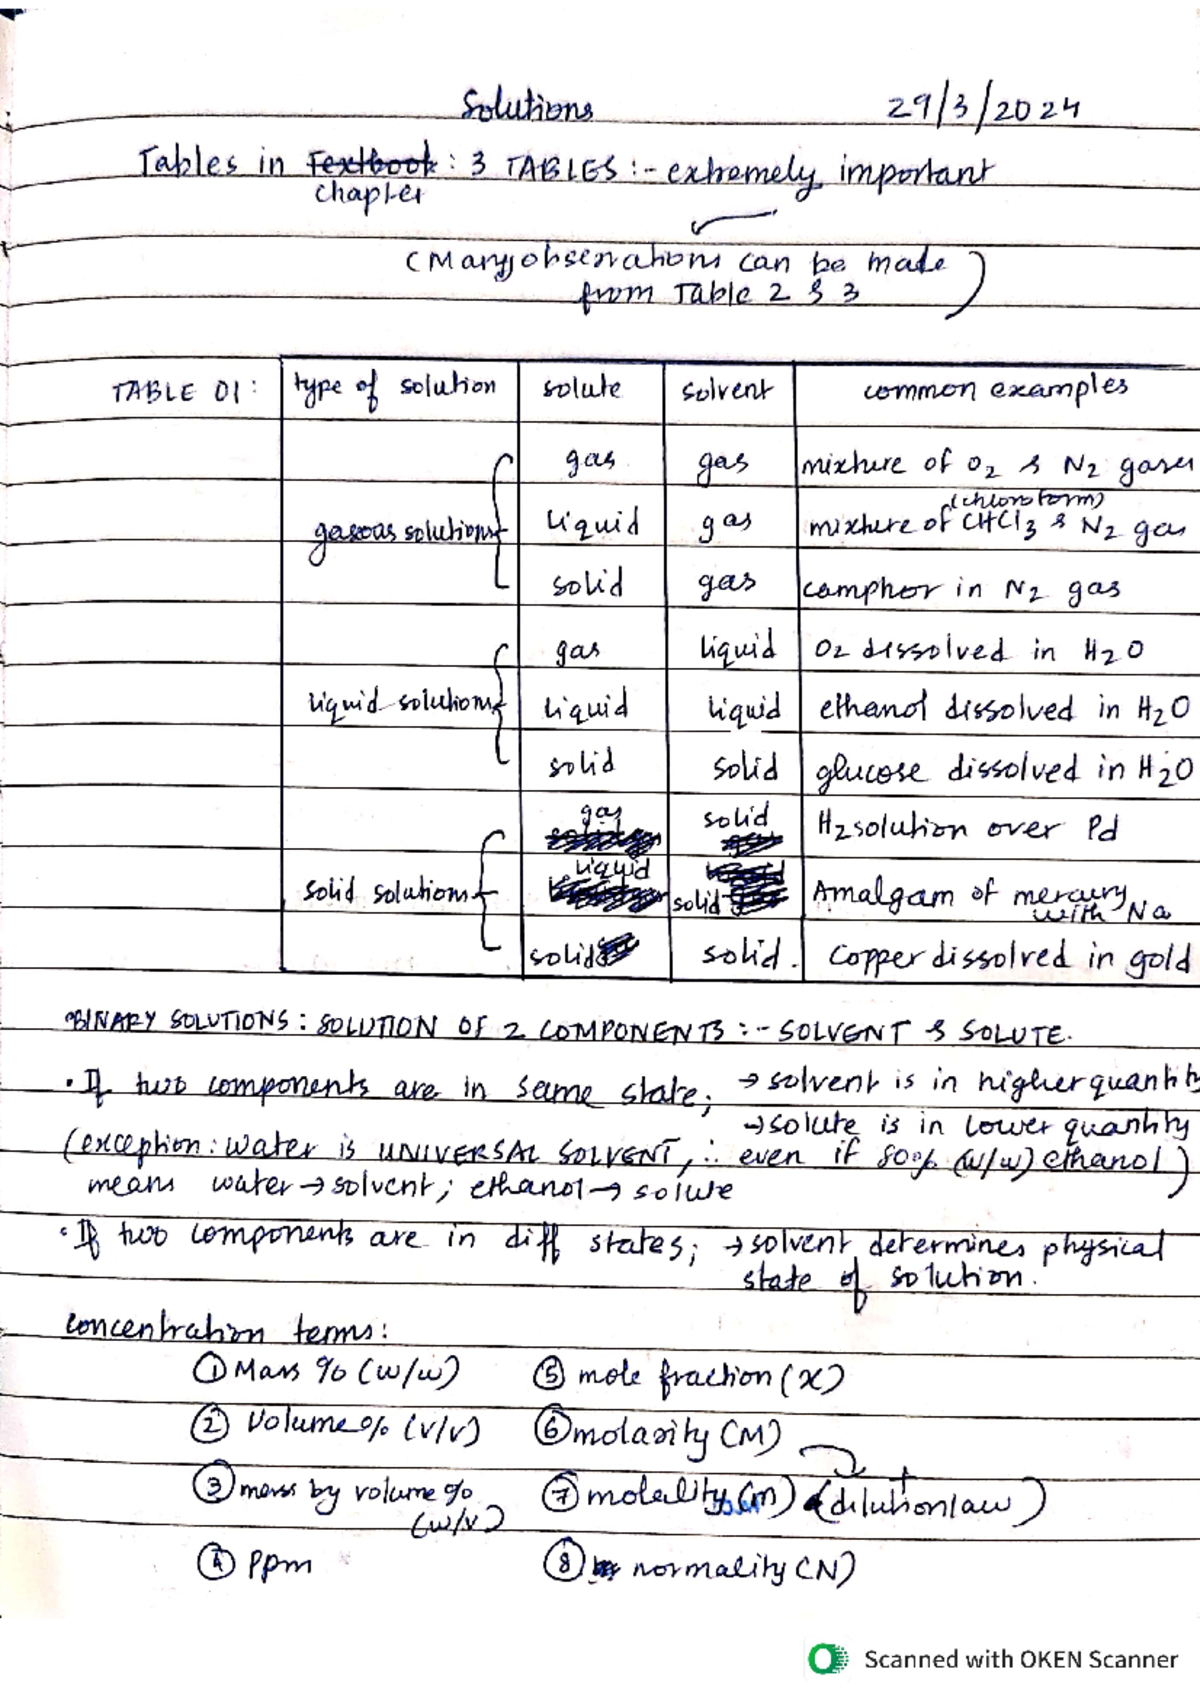 Solutions 29/3/2024
Tables in Textbook : 3 TABLES :- extremely important
chapter
(Many observations can be made
from Table 2 & 3)
TABLE 01: type of solution solute solvent common examples
gas gas mixture of O2 & N2 gases
(chloroform)
gaseous solutions liquid gas mixture of CHCl3 & N2 gas
solid gas camphor in N2 gas
gas liquid O2 dissolved in H2O
liquid solutions liquid liquid ethanol dissolved in H2O
solid solid glucose dissolved in H2O
gas solid H2 solution over Pd
solid solutions liquid solid Amalgam of mercury
with Na
solid solid. Copper dissolved in gold
BINARY SOLUTIONS : SOLUTION OF 2 COMPONENTS :- SOLVENT & SOLUTE.
• If two components are in same state; → solvent is in higher quantity
→ solute is in lower quantity
(exception: water is UNIVERSAL SOLVENT, ∴ even if 80% (w/w) ethanol)
means water → solvent; ethanol → solute
• If two components are in diff states; → solvent determines physical
state of solution.
concentration terms:
① Mass % (w/w) ⑤ mole fraction (x)
② Volume % (v/v) ⑥ molarity (M)
③ mass by volume % ⑦ molality (m) (dilution law)
(w/v)
④ ppm ⑧ normality (N)
Scanned with OKEN Scanner